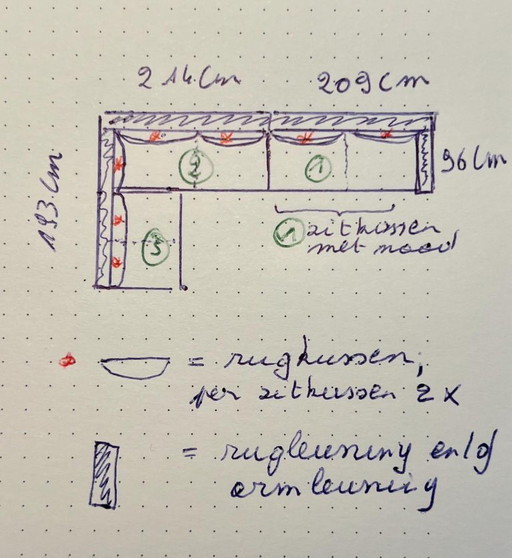 214cm
209cm
193cm
96cm
2
1
3
1 zitkussen
met naad
= rugkussen,
per zitkussen 2x
= rugleuning en/of
armleuning